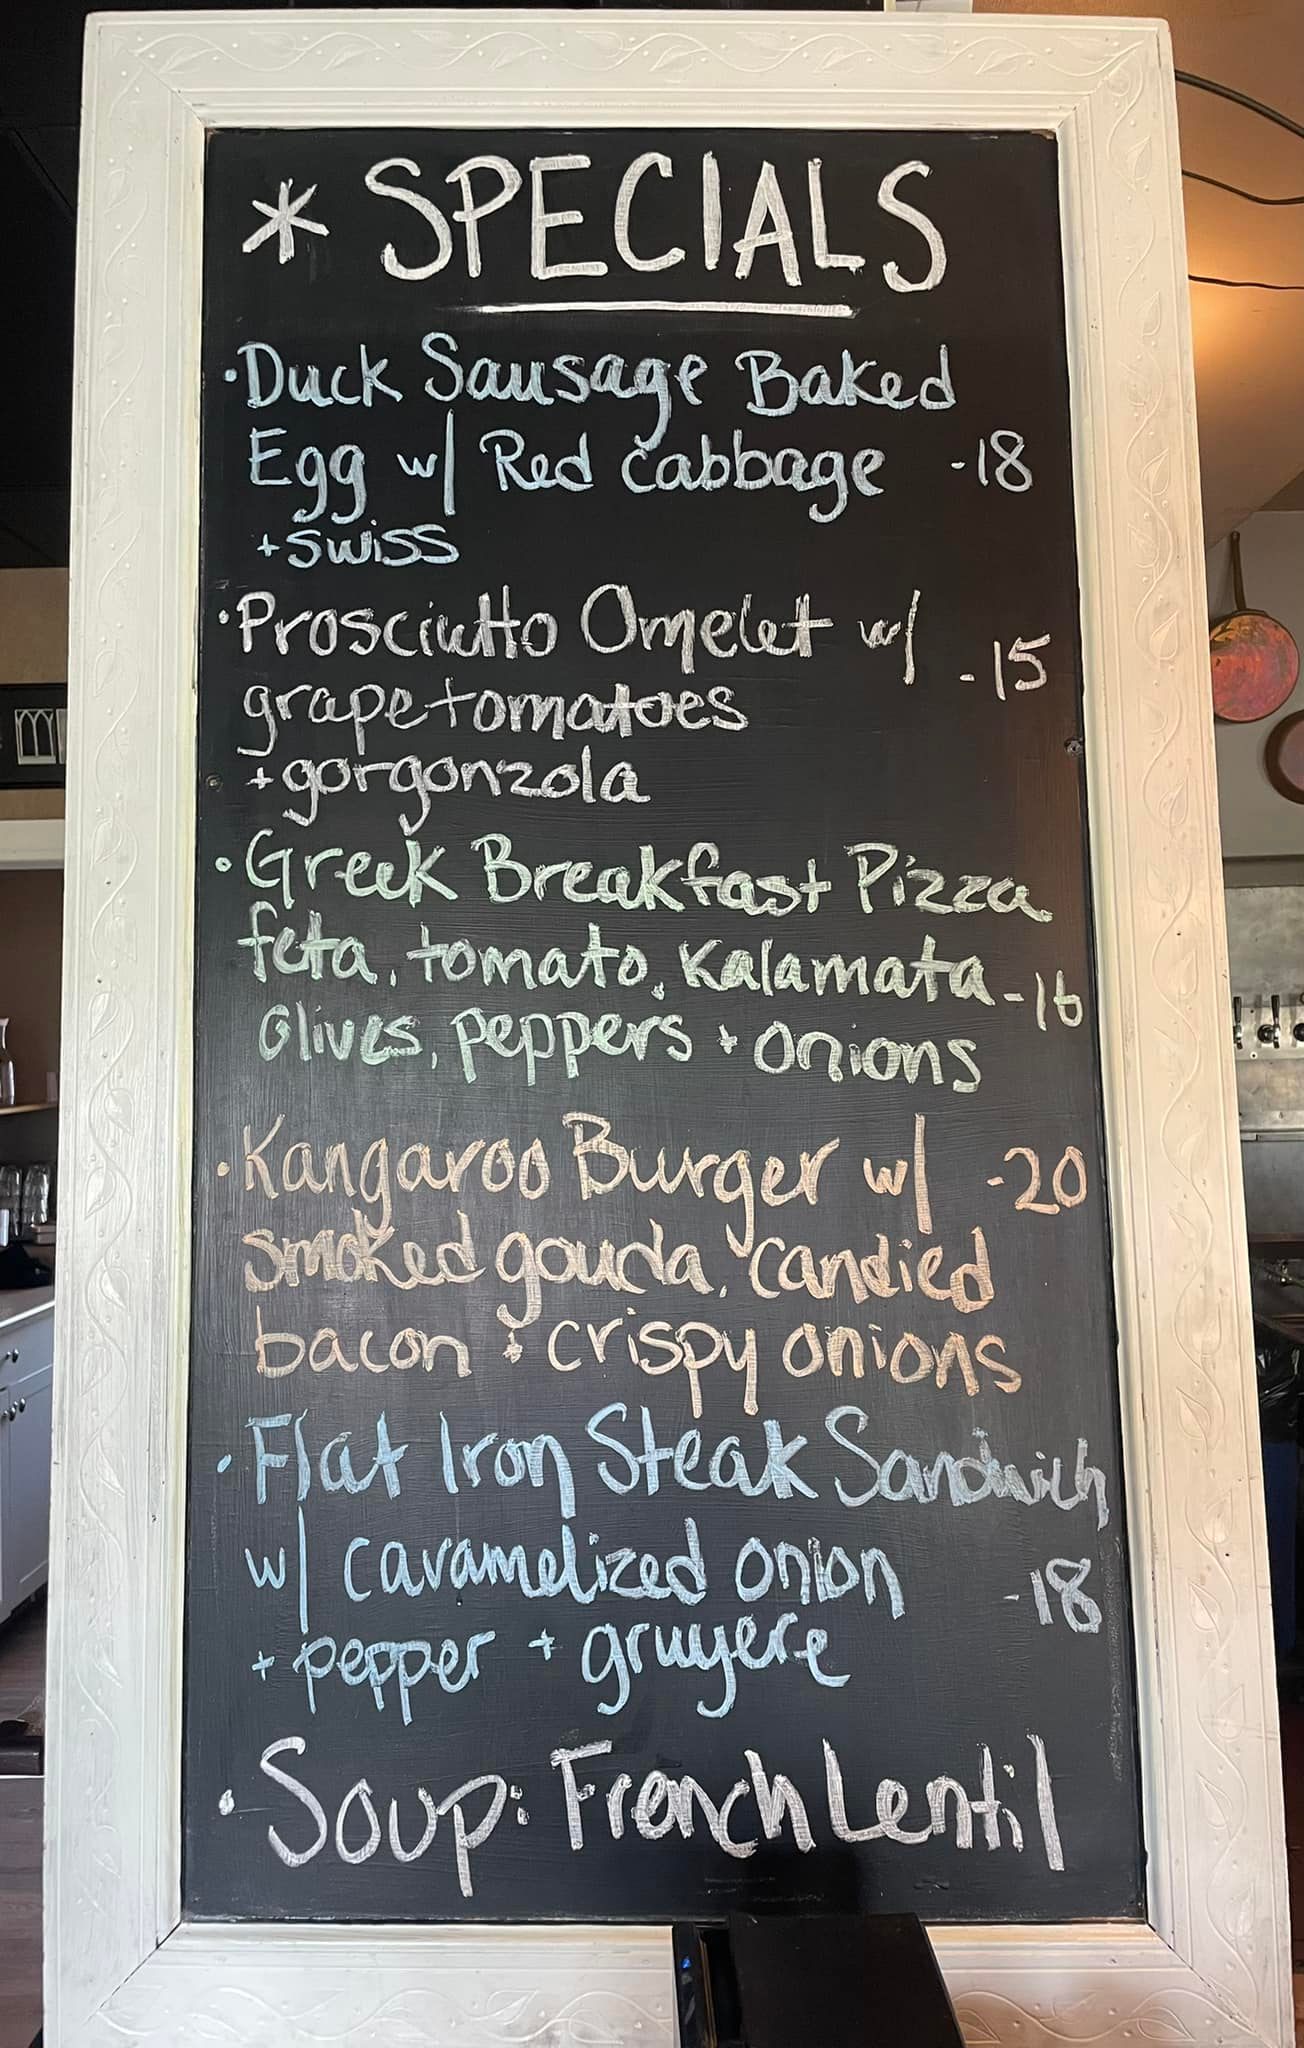 * SPECIALS
• Duck Sausage Baked
Egg w/ Red cabbage -18
+ swiss
• Prosciutto Omelet w/ -15
grape tomatoes
+ gorgonzola
• Greek Breakfast Pizza
feta, tomato, Kalamata -16
olives, peppers + onions
• Kangaroo Burger w/ -20
smoked gouda, candied
bacon + crispy onions
• Flat Iron Steak Sandwich
w/ caramelized onion -18
+ pepper + gruyere
• Soup: French Lentil